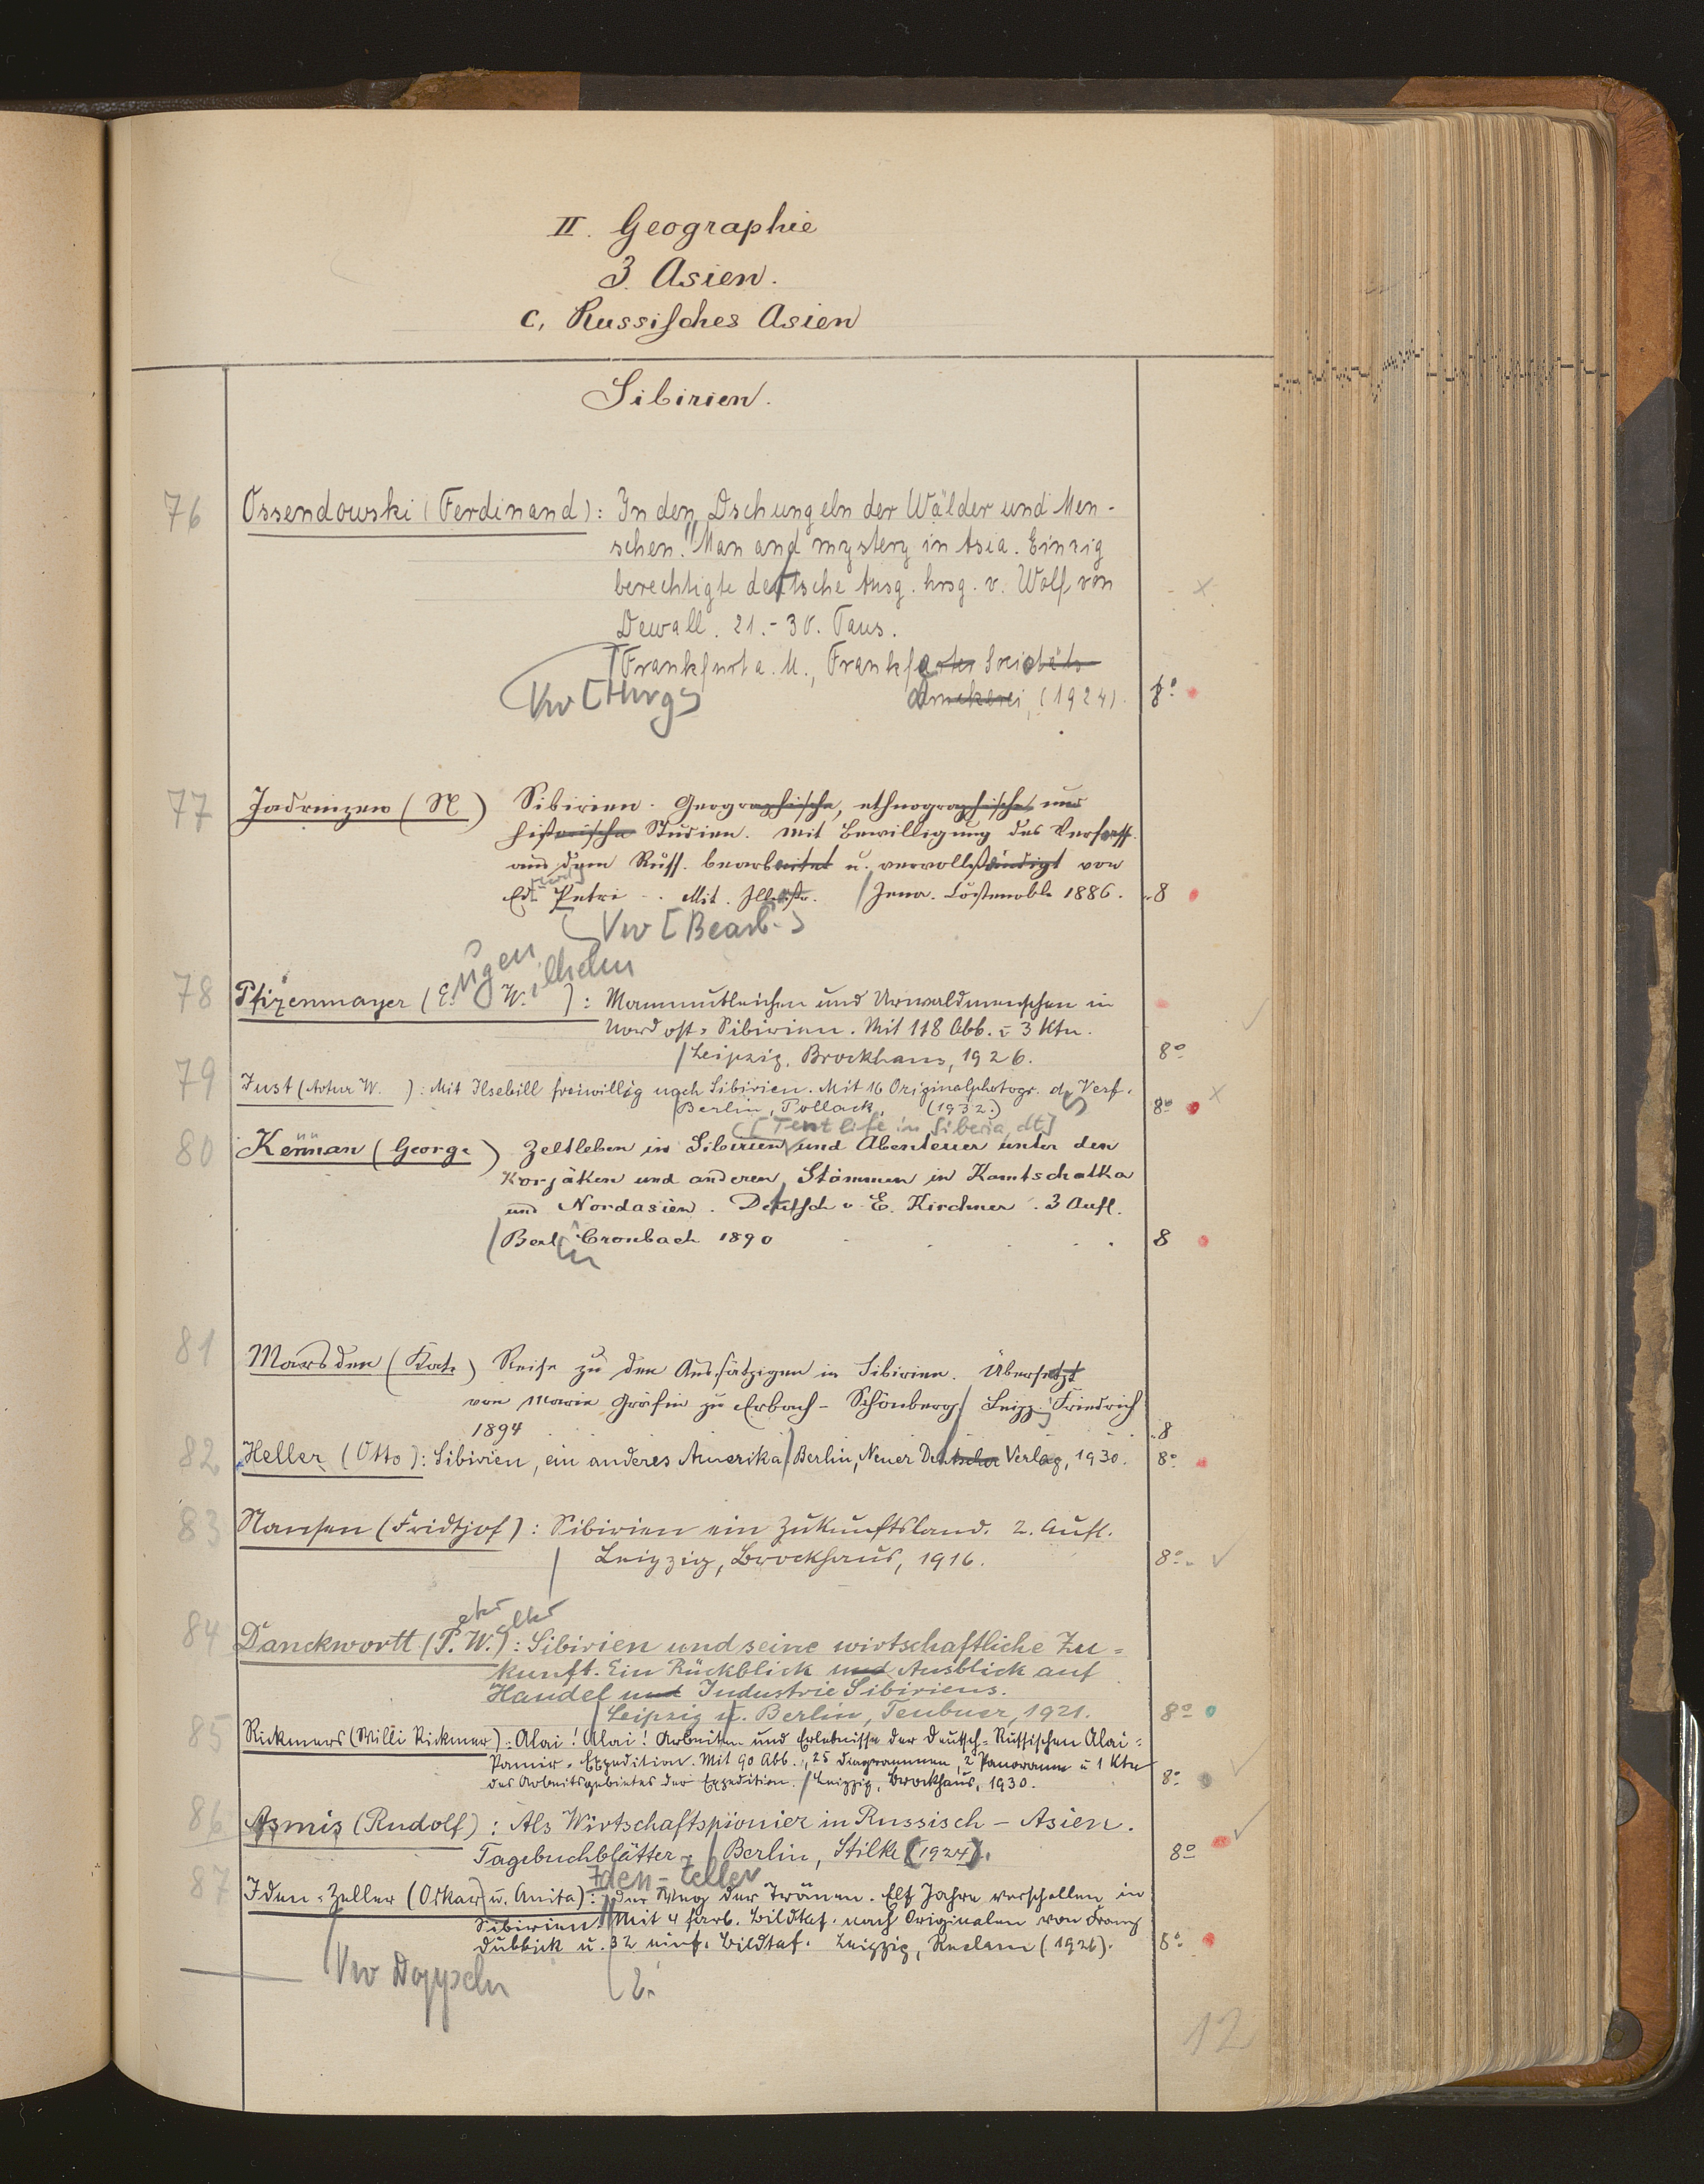 II. Geographie
3. Asien.
c, Russisches Asien
Sibirien.
76 Ossendowski (Ferdinand): In den Dschungeln der Wälder und Men-
schen. Man and mystery in Asia. Einzig
berechtigte deutsche Ausg. hrsg. v. Wolf von
Dewall. 21.-30. Taus.
Frankfurt a. M., Frankfurter Societäts
druckerei, (1924). 8°
Vw [Hrsg]
77 Jadrinzew (N) Sibirien. Geographische, ethnographische und
historische Studien. Mit Bewilligung des Verfass.
aus dem Russ. bearbeitet u. vervollständigt von
Ed. Petri. Mit Illustr. / Jena. Costenoble 1886. 8
Vw [Bearb.]
ugen ilhelm
78 Pfizenmayer (E. W. ): Mammutleichen und Urwaldmenschen in
Nordost-Sibirien. Mit 118 Abb. u 3 Ktn.
/ Leipzig, Brockhaus, 1926. 8°
79 Just (Artur W. ): Mit Ilsebill freiwillig nach Sibirien. Mit 16 Originalphotogr. d. Verf.
/ Berlin, Pollack, (1932.) 8°
[Tent life in Siberia, dt]
80 Kennan (George) Zeltleben in Sibirien und Abenteuer unter den
Korjäken und anderen Stämmen in Kamtschatka
und Nordasien. Deutsch v. E. Kirchner. 3 Aufl.
/ Berl Cronbach 1890 8
in
81 Marsden (Kate) Reise zu den Aussätzigen in Sibirien. Übersetzt
von Marie Gräfin zu Erbach-Schönberg / Leipz. Friedrich
1894 8
82 Heller (Otto): Sibirien, ein anderes Amerika / Berlin, Neuer Deutscher Verlag, 1930. 8°
83 Nansen (Fridtjof): Sibirien ein Zukunftsland. 2. Aufl.
/ Leipzig, Brockhaus, 1916. 8°
eter alter
84 Danckwortt (P. W.): Sibirien und seine wirtschaftliche Zu-
kunft. Ein Rückblick und Ausblick auf
Handel und Industrie Sibiriens.
/ Leipzig u. Berlin, Teubner, 1921. 8°
85 Rickmers (Willi Rickmer): Alai! Alai! Arbeiten und Erlebnisse der Deutsch-Russischen Alai-
Pamir-Expedition. Mit 90 Abb., 25 Diagrammen, 2 Panoramen u 1 Ktn
des Arbeitsgebietes der Expedition. / Leipzig, Brockhaus, 1930. 8°
86 Asmis (Rudolf): Als Wirtschaftspionier in Russisch-Asien.
Tagebuchblätter. / Berlin, Stilke (1924). 8°
Iden-Zeller
87 Iden-Zeller (Oskar u. Anita): Der Weg der Tränen. Elf Jahre verschollen in
Sibirien. Mit 4 farb. Bildtaf. nach Originalen von Franz
Dubbick u. 32 einf. Bildtaf. Leipzig, Reclam (1926). 8°
Vw Doppeln
12